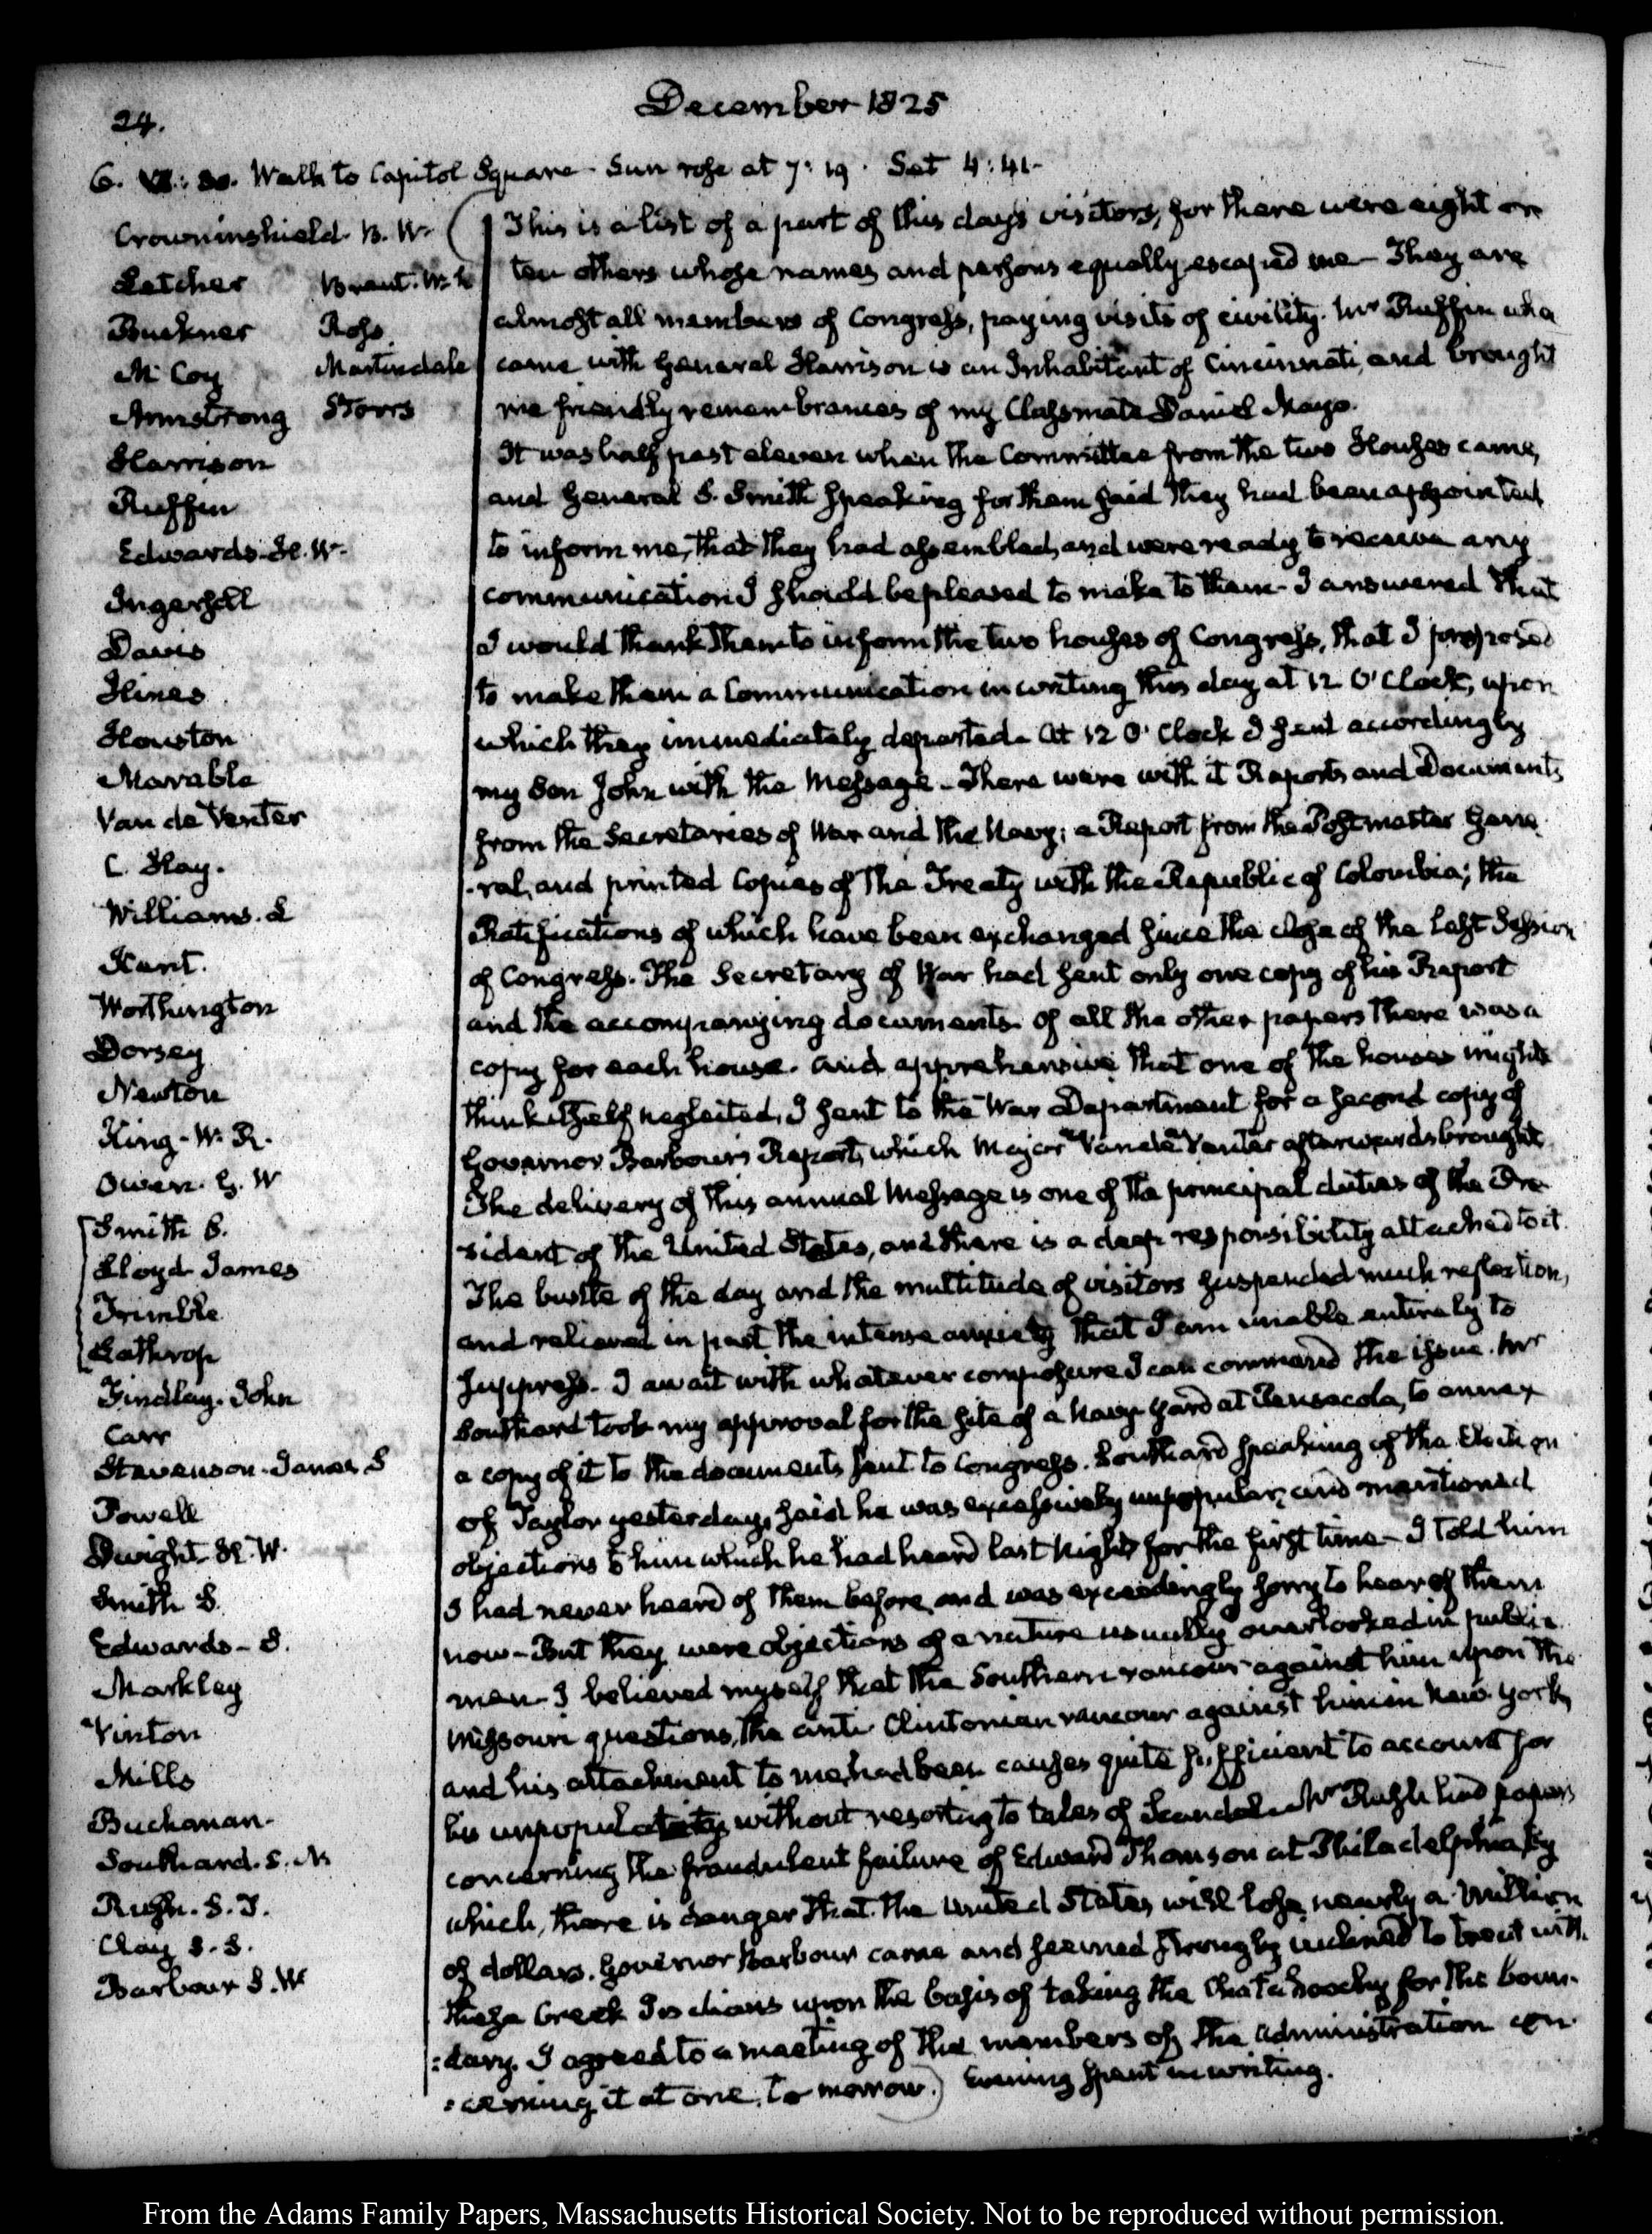 24.
December 1825
6. VI: 30. Walk to Capitol Square - Sun rose at 7:19. Set 4:41-
Crowninshield. B. W.
Letcher
Brent. W. L
Buckner
Ross
McCoy
Martindale
Armstrong
Storrs
Harrison
Ruffin
Edwards. H. W.
Ingersoll
Davis
Hines
Houston
Marable
Van de Venter
C. Hay.
Williams. L
Kent.
Worthington
Dorsey
Newton
King - W. R.
Owen. G. W
Smith S.
Lloyd James
Trimble
Lathrop
Findlay. John
Carr
Stevenson. James S
Powell
Dwight H. W.
Smith S.
Edwards - S.
Markley
Vinton
Mills
Buchanan.
Southard. S. N.
Rush. S. T.
Clay S. S.
Barbour S. W
This is a list of a part of this day's visitors, for there were eight or
ten others whose names and persons equally escaped me - They are
almost all members of Congress, paying visits of civility. Mr Ruffin who
came with General Harrison is an Inhabitant of Cincinnati, and brought
me friendly remembrances of my Classmate Daniel Mayo.
It was half past eleven when the Committee from the two Houses came,
and General S. Smith speaking for them said they had been appointed
to inform me, that they had assembled, and were ready to receive any
communication I should be pleased to make to them - I answered that
I would thank them to inform the two houses of Congress, that I proposed
to make them a Communication in writing this day at 12 O'Clock, upon
which they immediately departed. At 12 O'Clock I sent accordingly
my Son John with the Message - There were with it Reports and Documents
from the Secretaries of War and the Navy; a Report from the Postmaster Gene-
-ral, and printed Copies of The Treaty with the Republic of Colombia; the
Ratifications of which have been exchanged since the close of the last Session
of Congress. The Secretary of War had sent only one copy of his Report
and the accompanying documents. of all the other papers there was a
copy for each house. and apprehensive that one of the houses might
think itself neglected, I sent to the War Department for a second copy of
Governor Barbour's Report, which Major Van de Venter afterwards brought.
The delivery of this annual Message is one of the principal duties of the Pre-
sident of the United States, and there is a deep responsibility attached to it.
The bustle of the day and the multitude of visitors suspended much reflection,
and relieved in part the intense anxiety that I am unable entirely to
suppress. I await with whatever composure I can command the issue. Mr
Southard took my approval for the site of a Navy Yard at Pensacola, to annex
a copy of it to the documents sent to Congress. Southard speaking of the Election
of Taylor yesterday, said he was excessively unpopular, and mentioned
objections to him which he had heard last Night for the first time - I told him
I had never heard of them before, and was exceedingly sorry to hear of them
now - But they were objections of a nature usually overlooked in public
men - I believed myself that the Southern rancour against him upon the
Missouri questions, the anti Clintonian rancour against him in New York,
and his attachment to me, had been causes quite sufficient to account for
his unpopularity, without resorting to tales of Scandal. Mr Rush had papers
concerning the fraudulent failure of Edward Thomson at Philadelphia by
which, there is danger that the United States will lose nearly a Million
of dollars. Governor Barbour came and seemed strongly inclined to treat with
these Creek Indians upon the basis of taking the Chatahoochy for the boun-
:dary. I agreed to a meeting of the members of the Administration con-
:cerning it at one, to morrow.) Evening spent in writing.
From the Adams Family Papers, Massachusetts Historical Society. Not to be reproduced without permission.